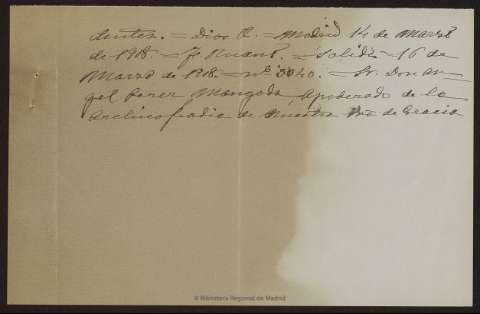 dentes. = Dios &. = Madrid 14 de Marzo
de 1918. = F. Ruano. = Salida 16 de
Marzo de 1918. = nº 3040. = Sr. Don An
gel Perez Mangada, Apoderado de la
Archicofradia de Nuestra Sra de Gracia
© Biblioteca Regional de Madrid